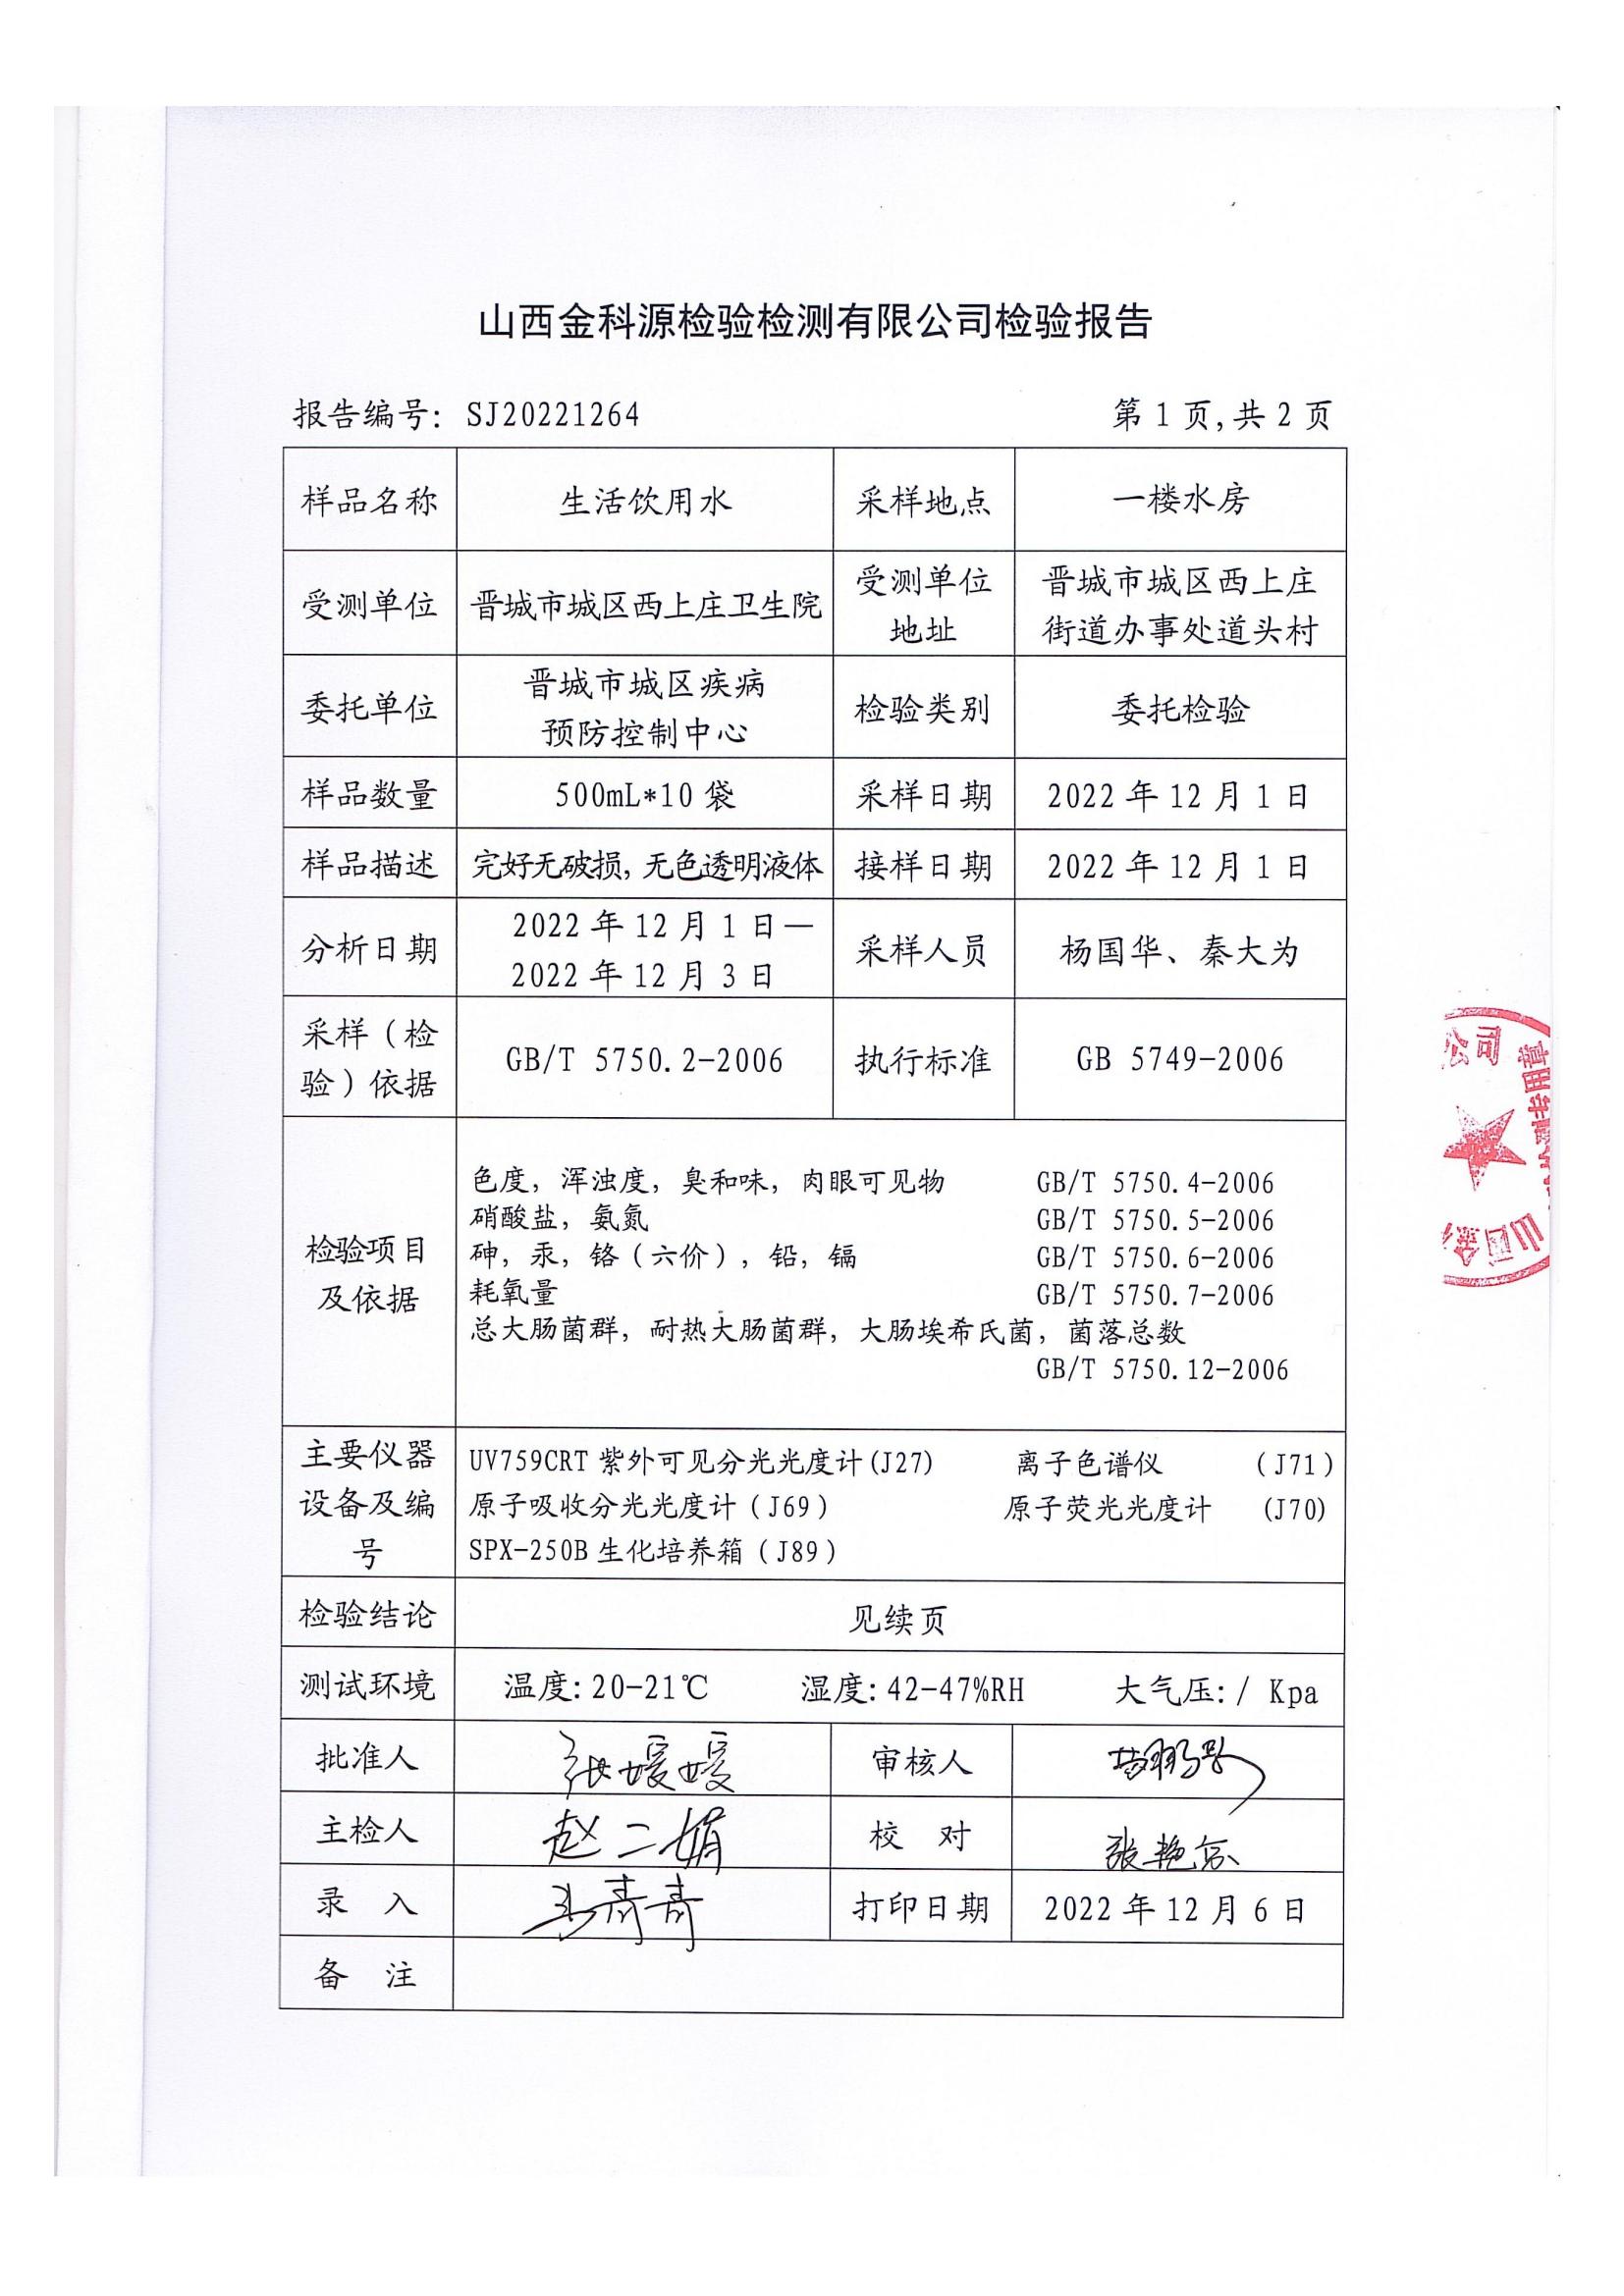 山西金科源检验检测有限公司检验报告
报告编号: SJ20221264 第 1 页,共 2 页
样品名称 生活饮用水 采样地点 一楼水房
受测单位 晋城市城区西上庄卫生院 受测单位
地址 晋城市城区西上庄
街道办事处道头村
委托单位 晋城市城区疾病
预防控制中心 检验类别 委托检验
样品数量 500mL*10 袋 采样日期 2022 年 12 月 1 日
样品描述 完好无破损,无色透明液体 接样日期 2022 年 12 月 1 日
分析日期 2022 年 12 月 1 日—
2022 年 12 月 3 日 采样人员 杨国华、秦大为
采样（检
验）依据 GB/T 5750.2-2006 执行标准 GB 5749-2006
检验项目
及依据
色度，浑浊度，臭和味，肉眼可见物 GB/T 5750.4-2006
硝酸盐，氨氮 GB/T 5750.5-2006
砷，汞，铬（六价），铅，镉 GB/T 5750.6-2006
耗氧量 GB/T 5750.7-2006
总大肠菌群，耐热大肠菌群，大肠埃希氏菌，菌落总数
GB/T 5750.12-2006
主要仪器
设备及编
号
UV759CRT 紫外可见分光光度计(J27) 离子色谱仪 （J71）
原子吸收分光光度计（J69） 原子荧光光度计 (J70)
SPX-250B 生化培养箱（J89）
检验结论 见续页
测试环境 温度:20-21℃ 湿度:42-47%RH 大气压:/ Kpa
批准人 张媛媛 审核人
主检人 赵二娟 校 对
录 入 打印日期 2022 年 12 月 6 日
备 注
公司
专用章
山西金